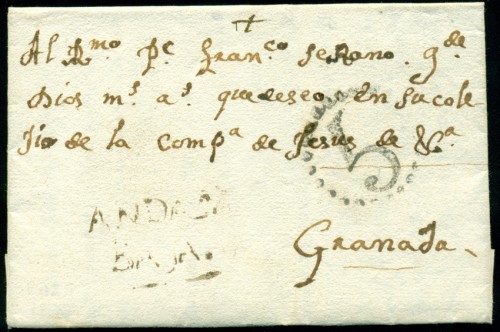 +
Al Rmo Pe Franco serrano gde
Dios ms as que deseo en su cole
Jio de la compa de Jesus de &a
5
ANDAL
BAJA.
Granada